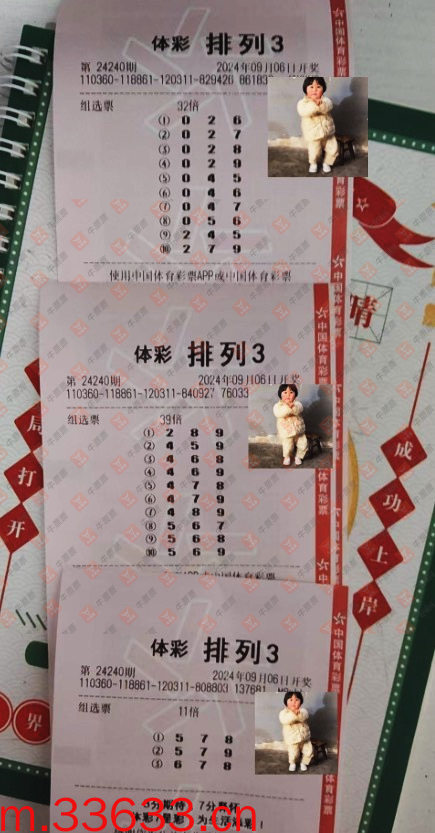 体彩 排列3
第 24240期 2024年09月06日开奖
110360-118861-120311-829426 861837
组选票 32倍
① 0 2 6
② 0 2 7
③ 0 2 8
④ 0 2 9
⑤ 0 4 5
⑥ 0 4 6
⑦ 0 4 7
⑧ 0 5 6
⑨ 2 4 5
⑩ 2 7 9
使用中国体育彩票APP或中国体育彩票
中国体育彩票
晴
体彩 排列3
第 24240期 2024年09月06日开奖
110360-118861-120311-840927 76033
组选票 39倍
① 2 8 9
② 4 5 9
③ 4 6 8
④ 4 6 9
⑤ 4 7 8
⑥ 4 7 9
⑦ 4 8 9
⑧ 5 6 7
⑨ 5 6 8
⑩ 5 6 9
中国体育彩票
体育彩票
局
打
开
成
功
上
岸
界
体彩 排列3
第 24240期 2024年09月06日开奖
110360-118861-120311-808803 137681
组选票 11倍
① 5 7 8
② 5 7 9
③ 6 7 8
中国体育彩票
体育彩票
3分期待 7分聚怀
为生活添彩
m.33633.cn